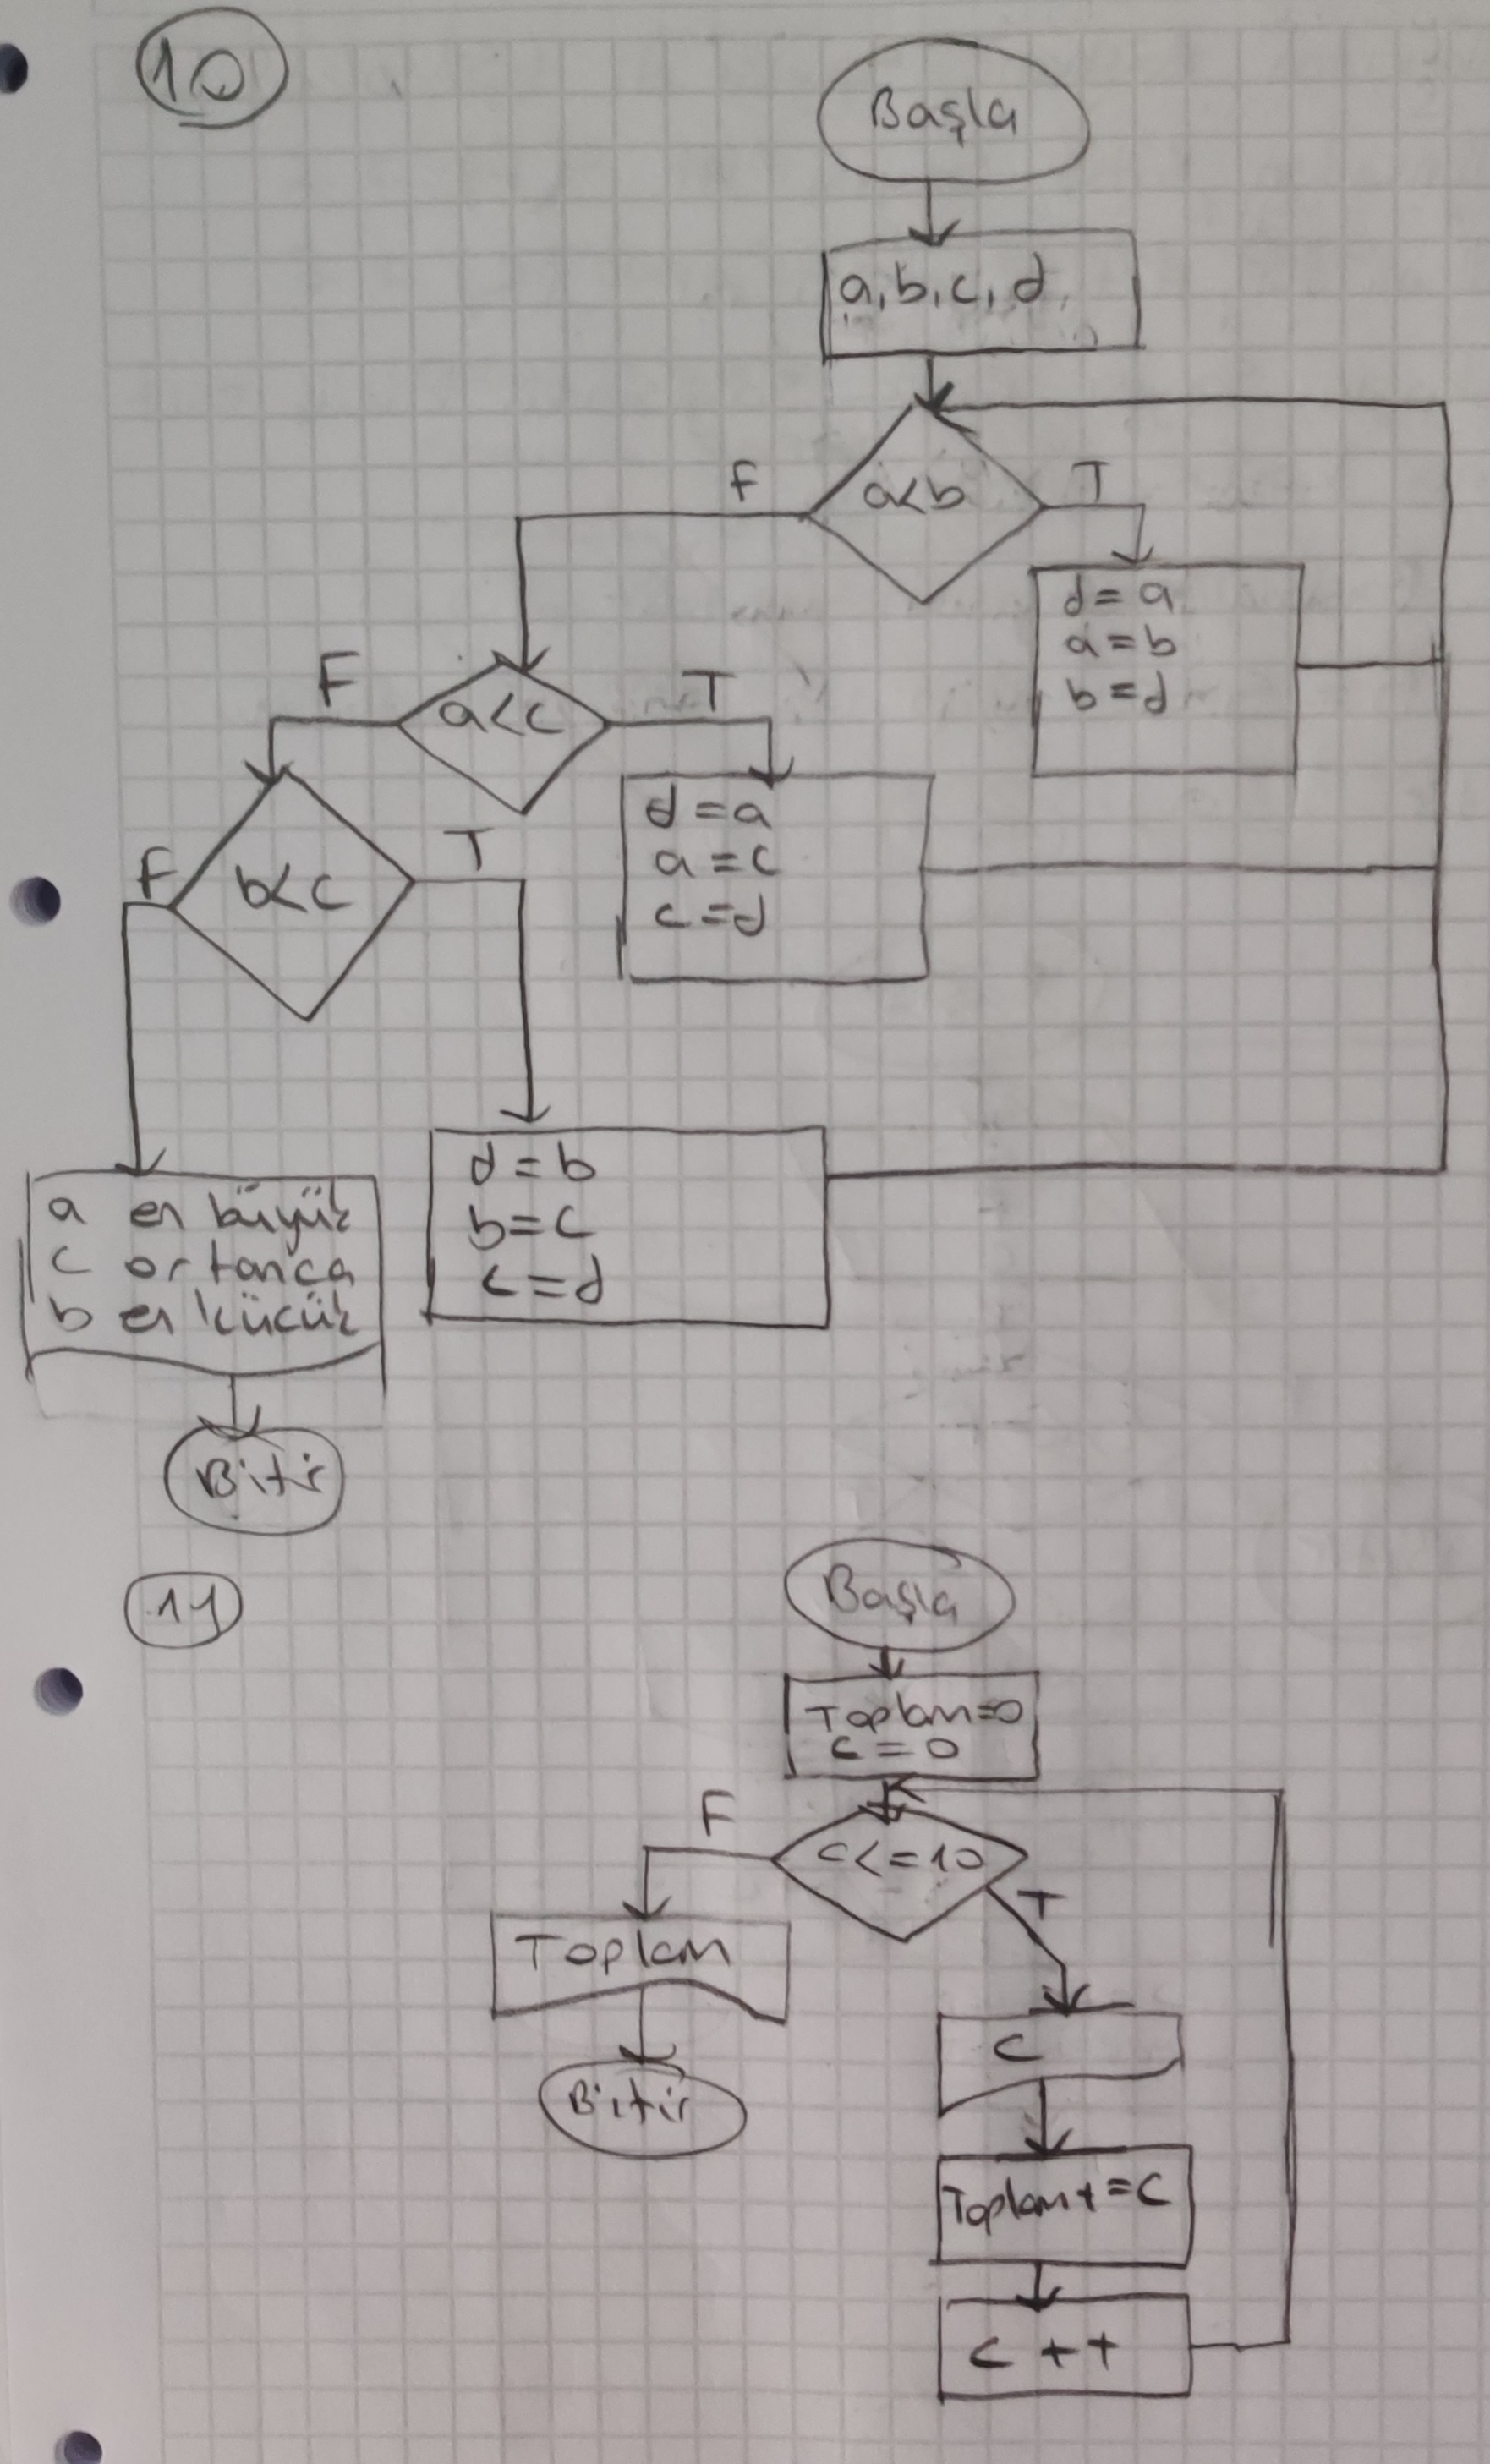 10
Başla
a, b, c, d
a<b
F
T
d = a
a = b
b = d
a<c
F
T
d = a
a = c
c = d
b<c
F
T
d = b
b = c
c = d
a en büyük
c ortanca
b en kücük
Bitir
11
Başla
Toplam=0
c = 0
c<=10
F
T
Toplam
Bitir
c
Toplam+=c
c ++